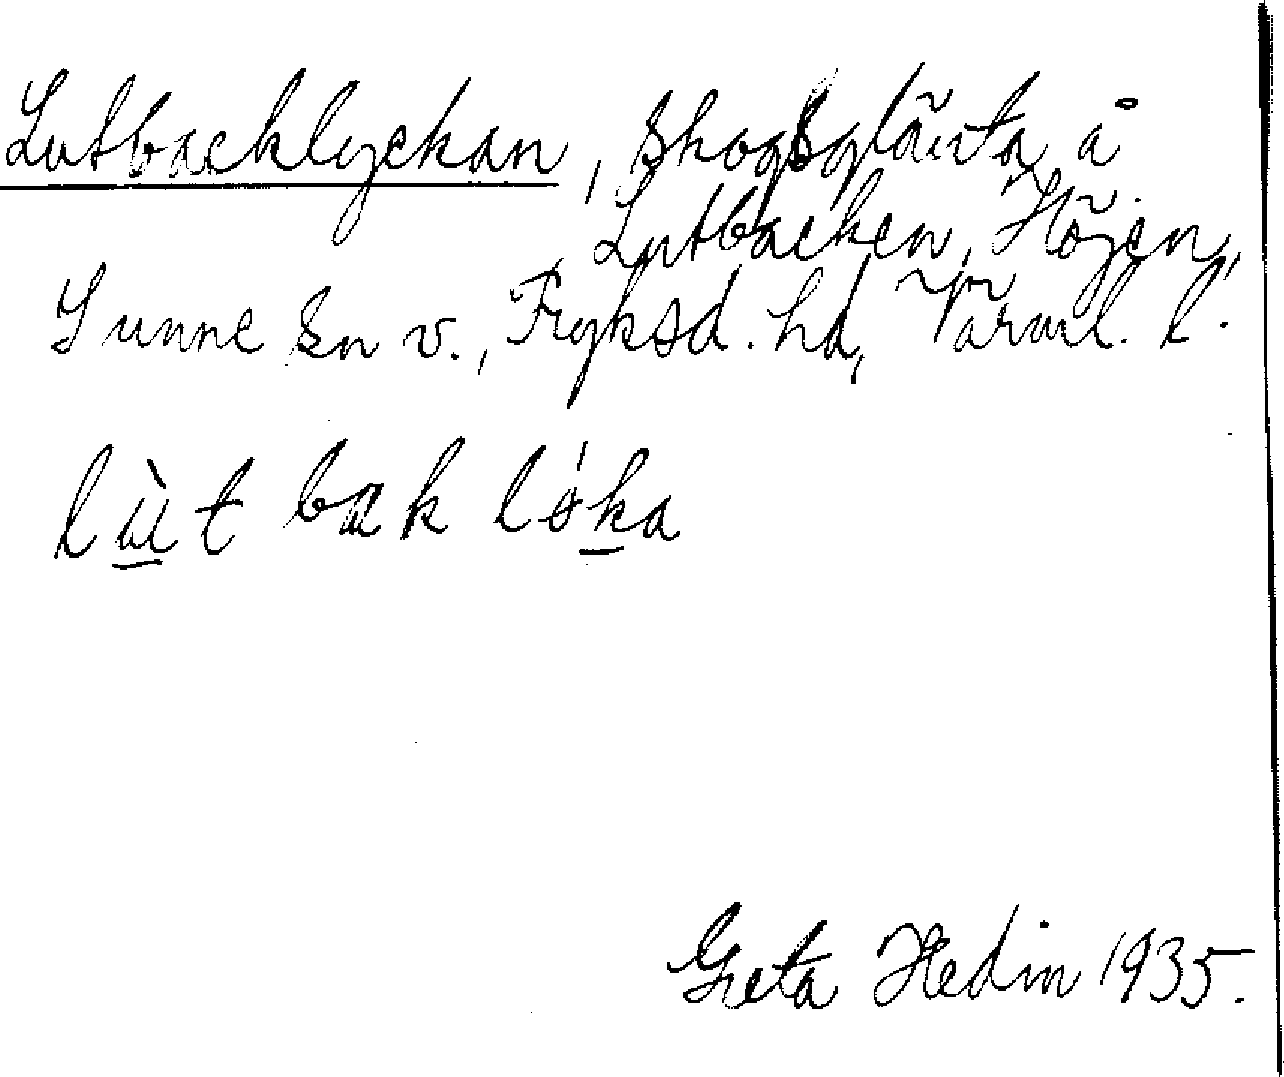 Lutbacklyckan, skogsglänta å
Lutbacken, Höjen,
Sunne sn v., Fryksd. hd, Värml. l.
lùt bak lǿka
Greta Hedin 1935.